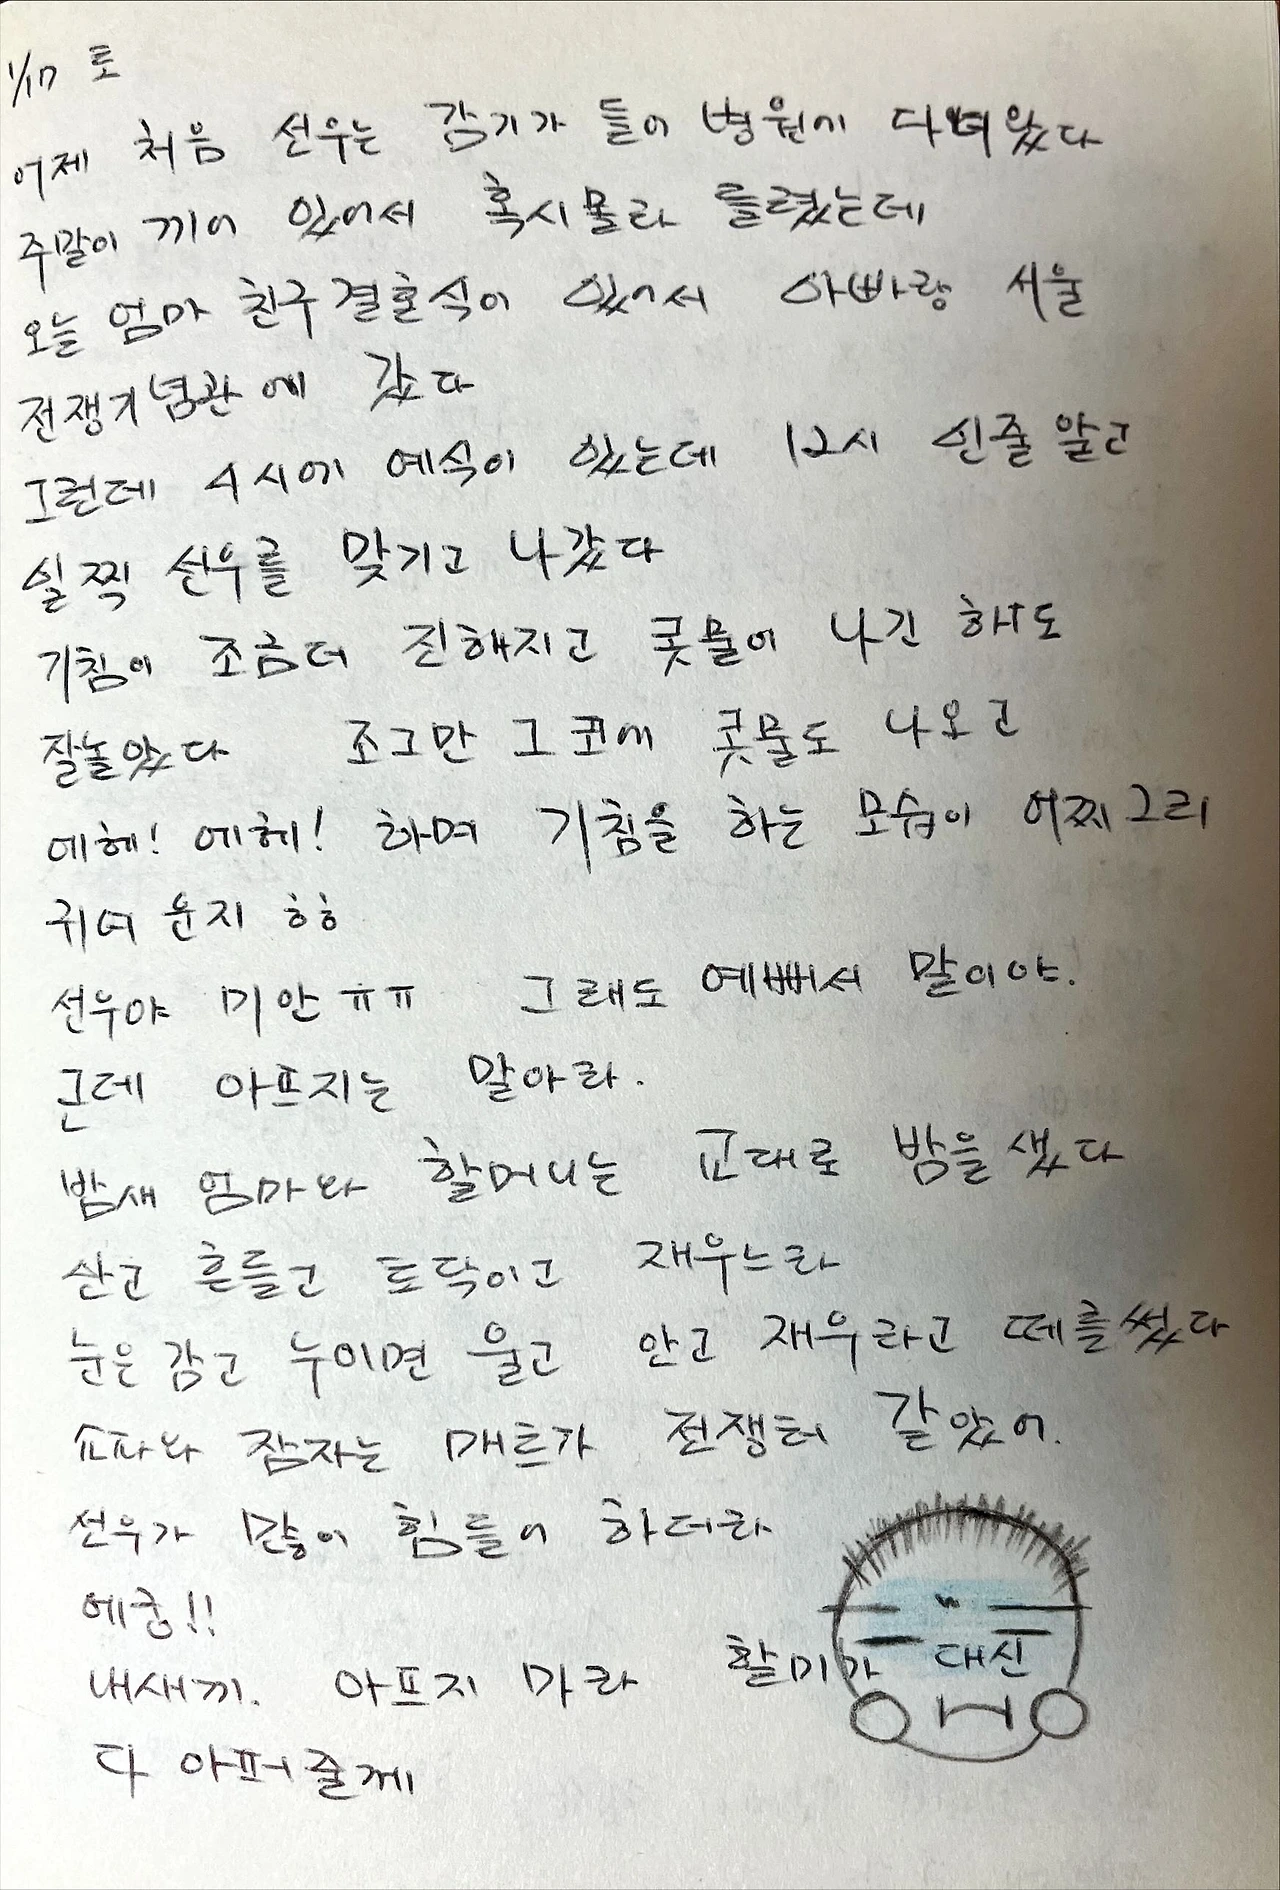 1/17 토
어제 처음 선우는 감기가 들어 병원에 다녀왔다
주말이 끼어 있어서 혹시몰라 들렸는데
오늘 엄마 친구결혼식이 있어서 아빠랑 서울
전쟁기념관에 갔다
그런데 4시에 예식이 있는데 12시 인줄알고
일찍 선우를 맞기고 나갔다
기침이 조금더 진해지고 콧물이 나긴 해도
잘놀았다 조그만 그코에 콧물도 나오고
에헤! 에헤! 하며 기침을 하는 모습이 어찌그리
귀여운지 ㅎㅎ
선우야 미안ㅠㅠ 그래도 예뻐서 말이야.
근데 아프지는 말아라.
밤새 엄마와 할머니는 교대로 밤을샜다
안고 흔들고 토닥이고 재우느라
눈은감고 누이면 울고 안고 재우라고 떼를썼다
쇼파와 잠자는 매트가 전쟁터 같았어.
선우가 많이 힘들어 하더라
에궁!!
내새끼. 아프지 마라 할미가 대신
다 아퍼줄께